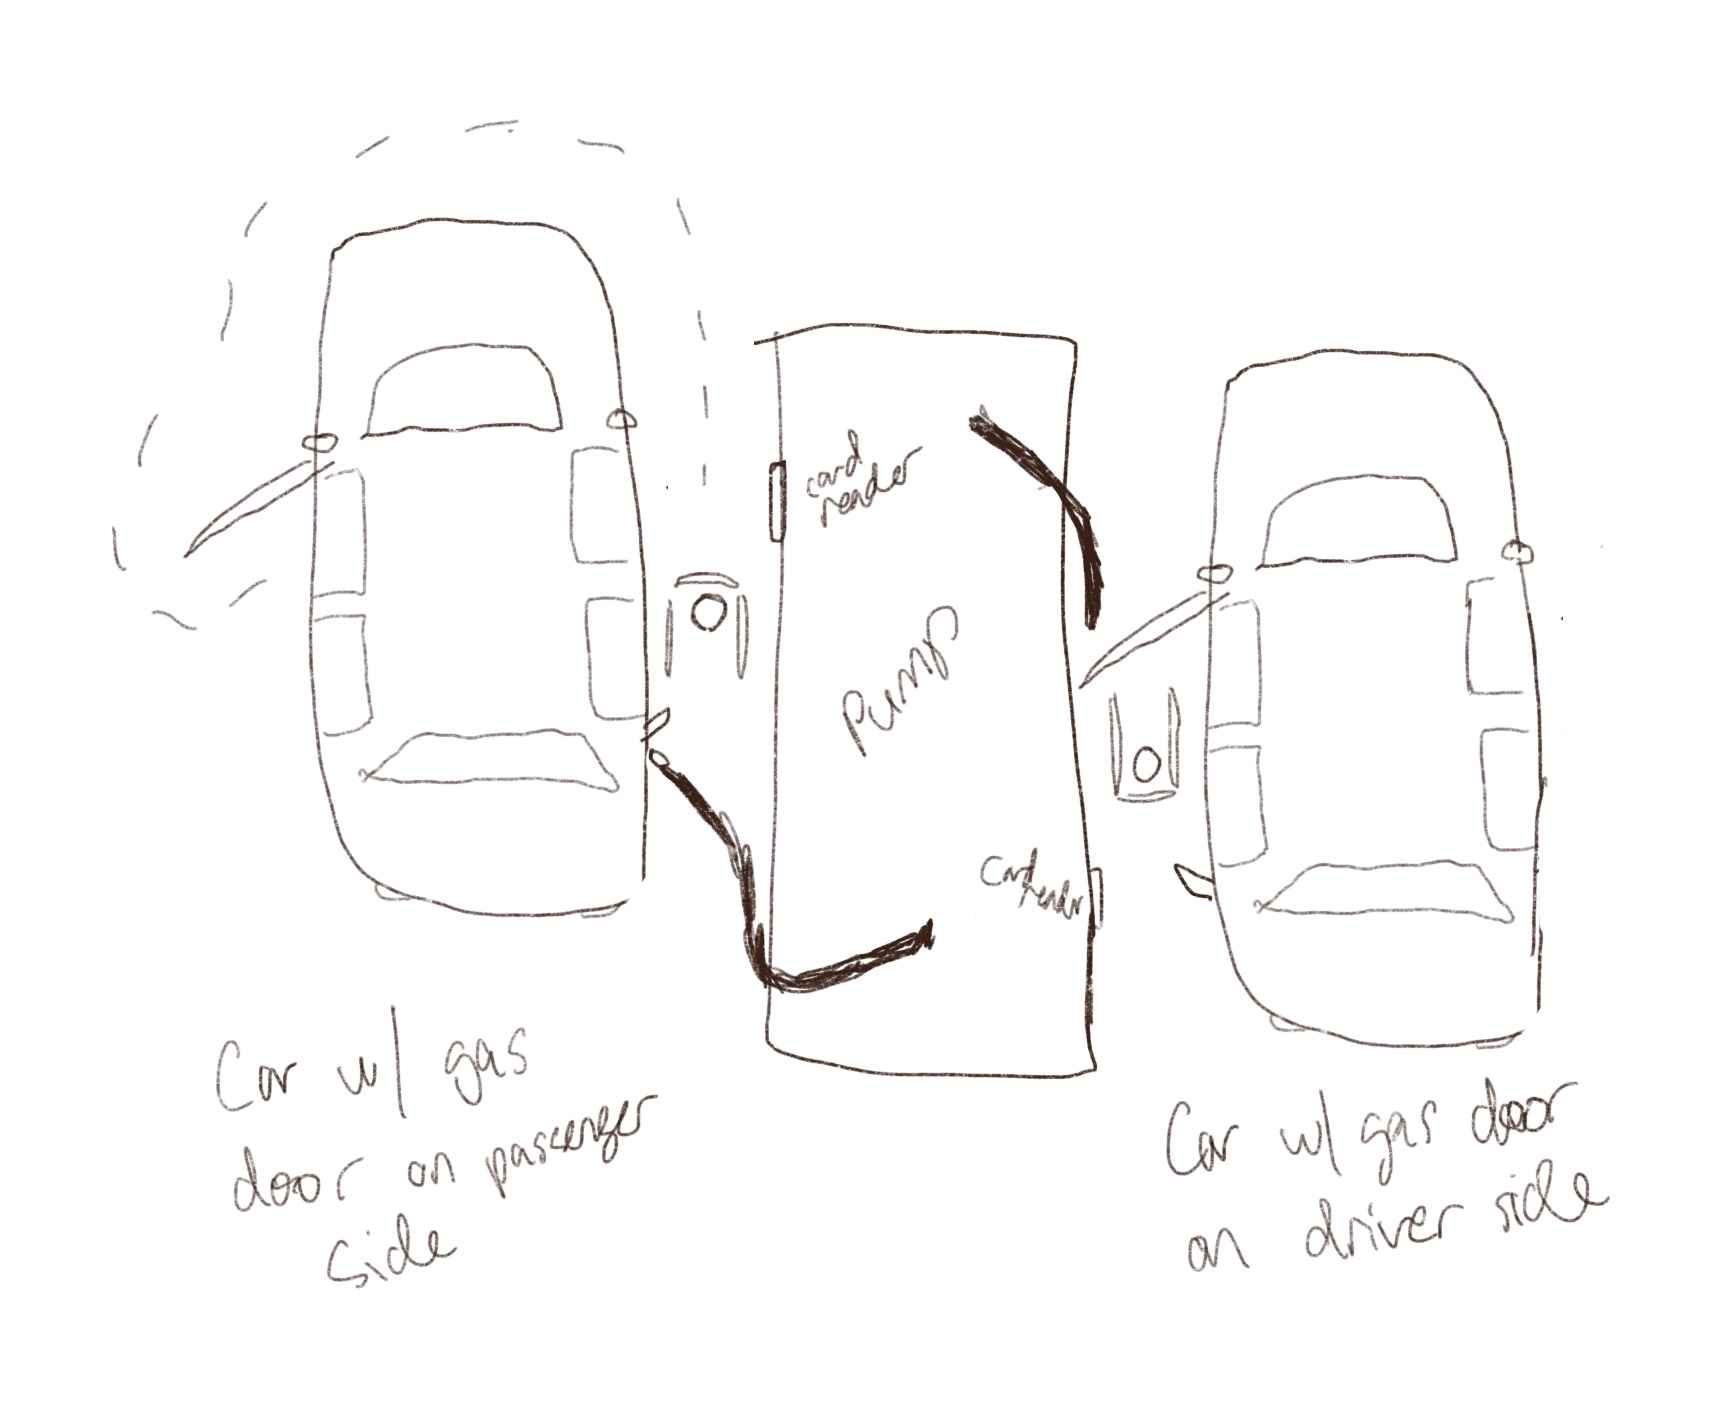 card
reader
Pump
Card
reader
Car w/ gas
door on passenger
side
Car w/ gas door
on driver side